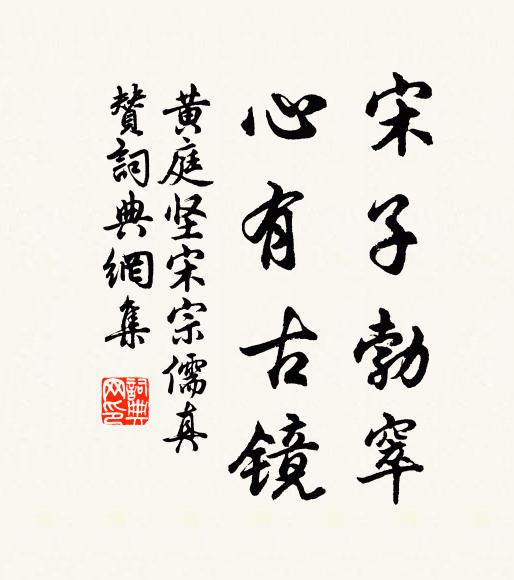 宋子勃窣
心有古镜
黄庭坚宋宗儒真
赞词典網集
詞典网印